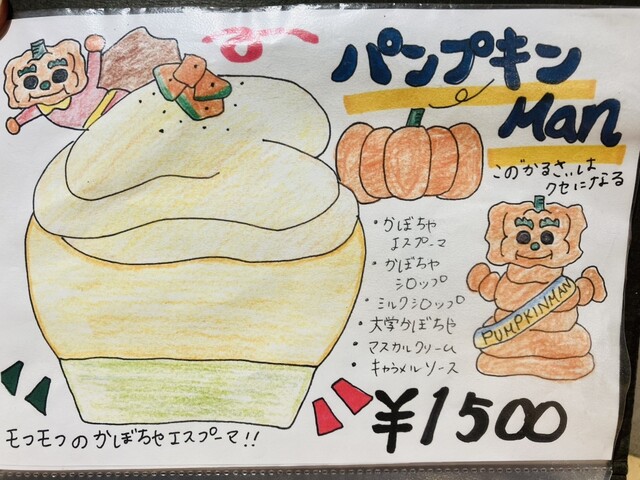 パンプキン
Man
このかるさいは
クセになる
・かぼちゃ
エスプーマ
・かぼちゃ
シロップ
・ミルクシロップ
・大学かぼちゃ
・マスカルクリーム
・キャラメルソース
PUMPKINMAN
¥1500
モフモフのかぼちゃエスプーマ!!